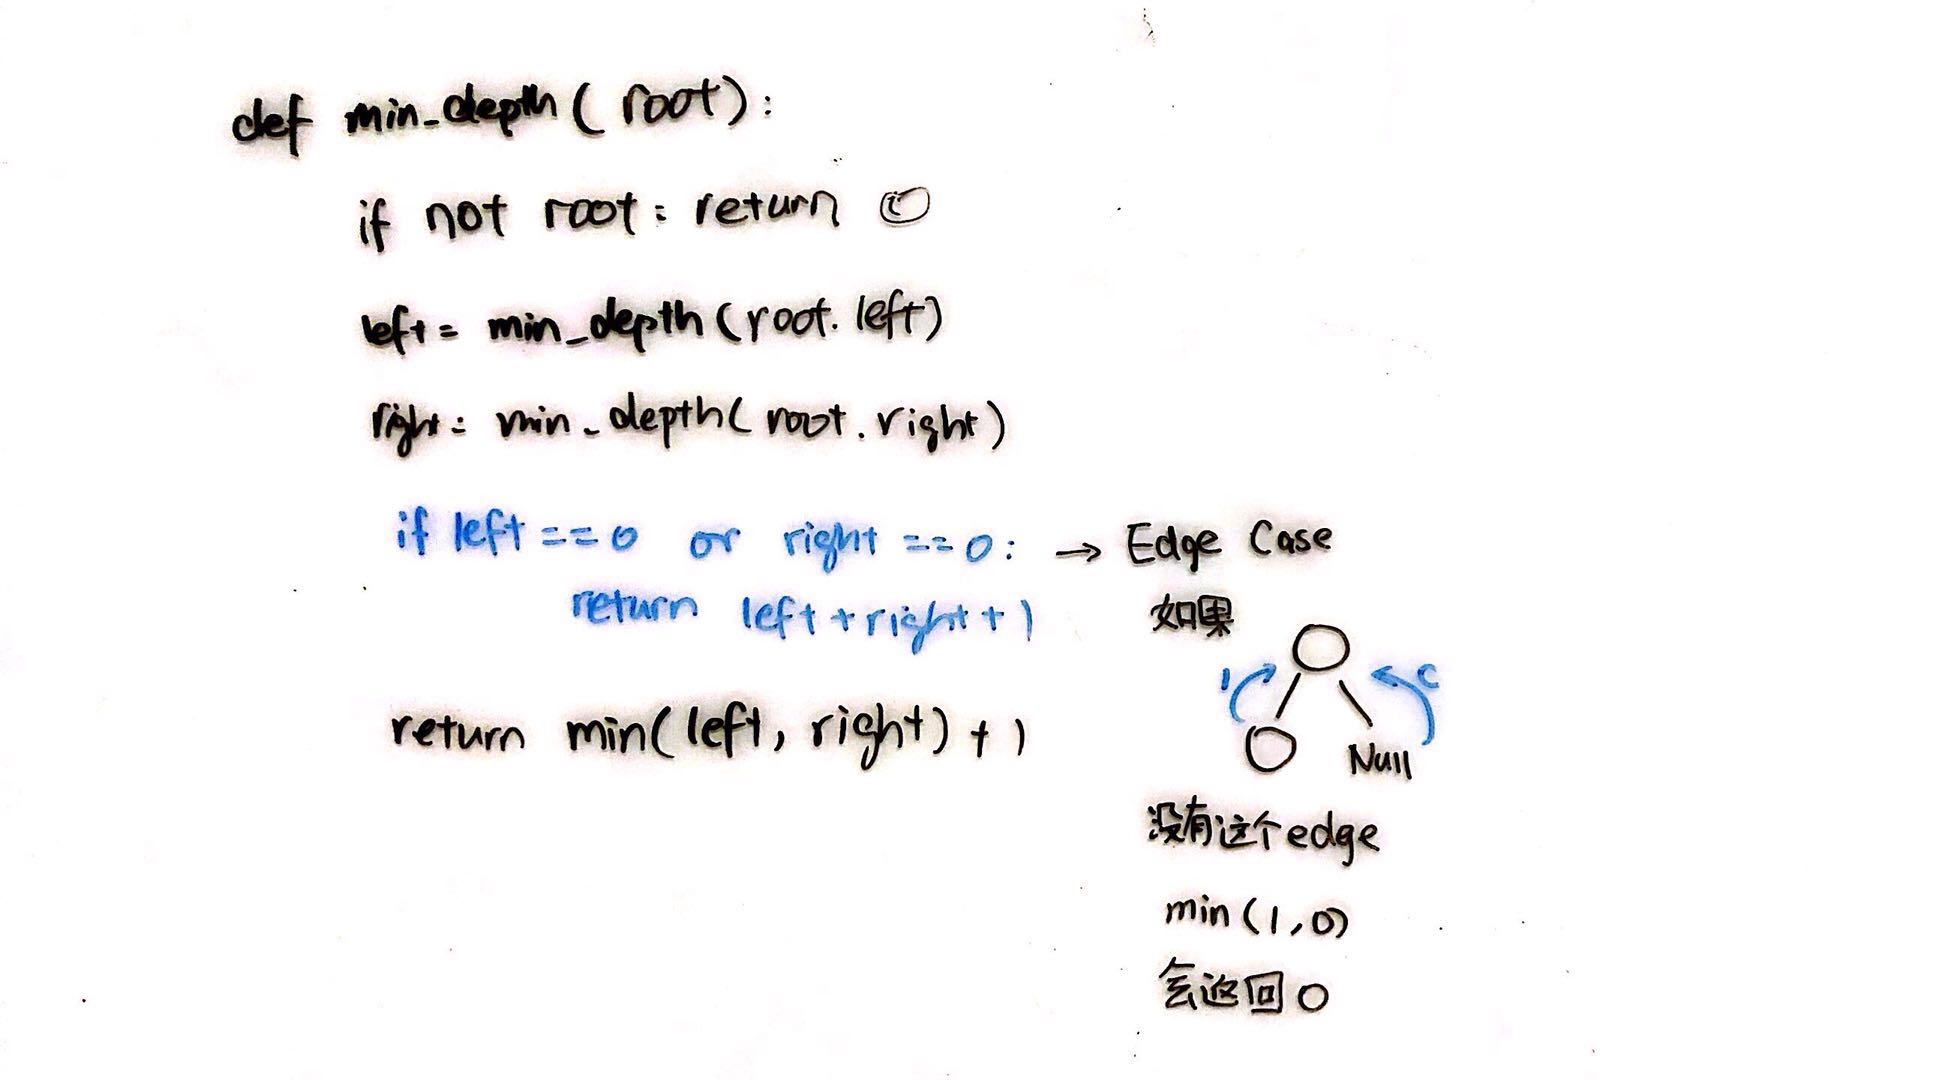 def min_depth(root):
if not root: return 0
left = min_depth(root.left)
right = min_depth(root.right)
if left == 0 or right == 0: → Edge Case
return left + right + 1
如果
1
0
Null
return min(left, right) + 1
没有这个edge
min(1,0)
会返回0